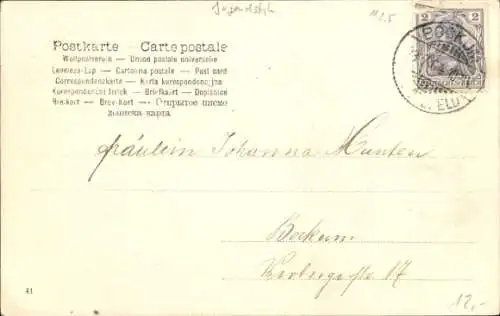 Jugendstil
Postkarte – Carte postale
Weltpostverein – Union postale universelle
Levelezo-Lap – Cartolina postale – Post card
Correspondenzkarte – Karta korespondencyjna
Korespondenční lístek – Briefkaart – Dopisnica
Brevkort – Brev-kort – Открытое письмо
Дописна карта
2
Fräulein Johanna Munten
Beckum
17
41
12,-